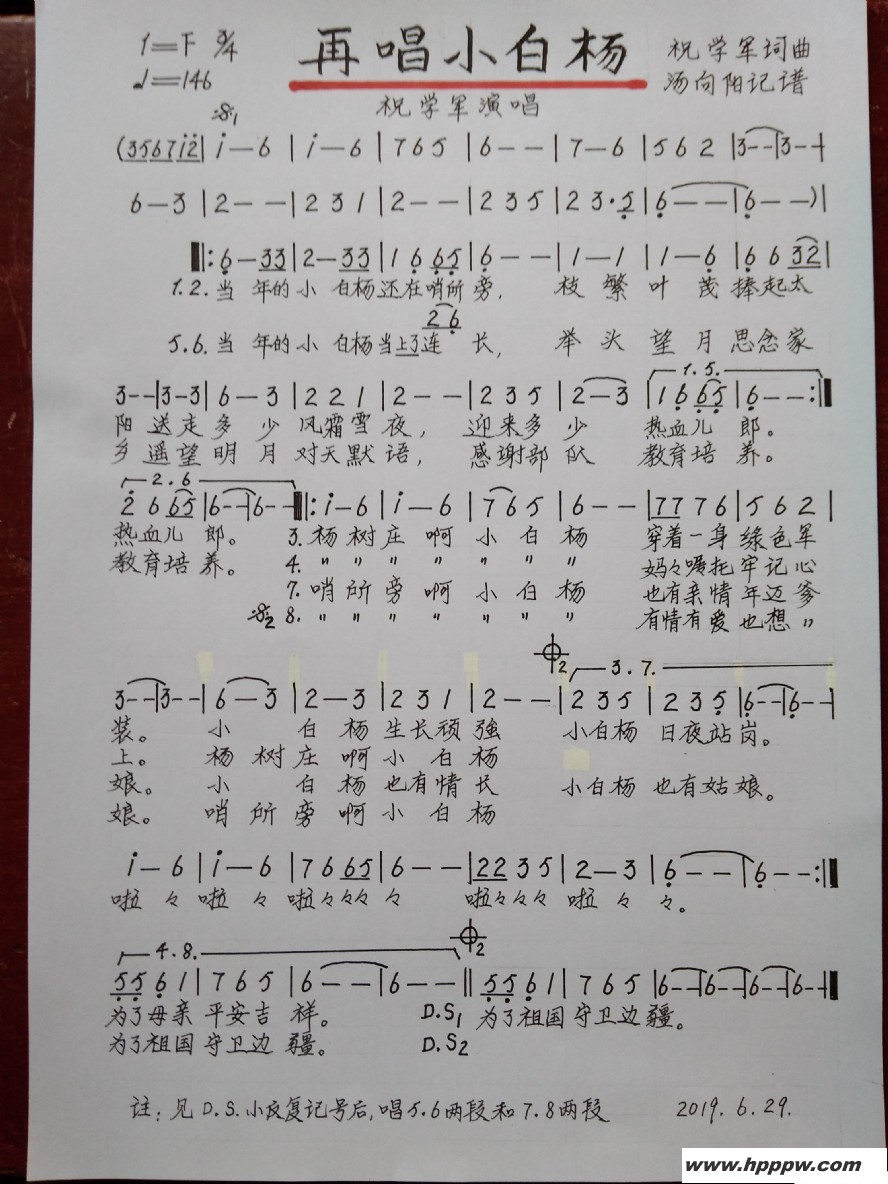 1=F 3/4
再唱小白杨
祝学军词曲
♩=146
汤向阳记谱
祝学军演唱
(356712|i—6|i—6|765|6——|7—6|562|3——|3——|
6—3|2——|231|2——|235|23·5|6——|6——)|
‖:6—33|2—33|1665|6——|1—1|1—6|6632|
1.2.当年的小白杨还在哨所旁，枝繁叶茂捧起太
26
5.6.当年的小白杨当上了连长，举头望月思念家
1.5.
3——|3—3|6—3|221|2——|235|2—3|1665|6——:‖
阳送走多少风霜雪夜，迎来多少热血儿郎。
乡遥望明月对天默语，感谢部队教育培养。
2.6
2665|6——|6——‖:i—6|i—6|765|6——|7776|562|
热血儿郎。3.杨树庄啊小白杨穿着一身绿色军
教育培养。4.〃〃〃〃〃〃〃妈々嘱托牢记心
7.哨所旁啊小白杨也有亲情年迈爹
8.〃〃〃〃〃〃〃有情有爱也想〃
2 3.7.
3——|3——|6—3|2—3|231|2——|235|235|6——|6——|
装。小白杨生长顽强小白杨日夜站岗。
上。杨树庄啊小白杨
娘。小白杨也有情长小白杨也有姑娘。
娘。哨所旁啊小白杨
i—6|i—6|7665|6——|2235|2—3|6——|6——:‖
啦々啦々啦々々々々啦々々々啦々々。
4.8. 2
5561|765|6——|6——‖5561|765|6——|6——|6——|6——‖
为了母亲平安吉祥。D.S1为了祖国守卫边疆。
为了祖国守卫边疆。D.S2
注：见D.S.小反复记号后，唱5.6两段和7.8两段 2019.6.29.
www.hpppw.com